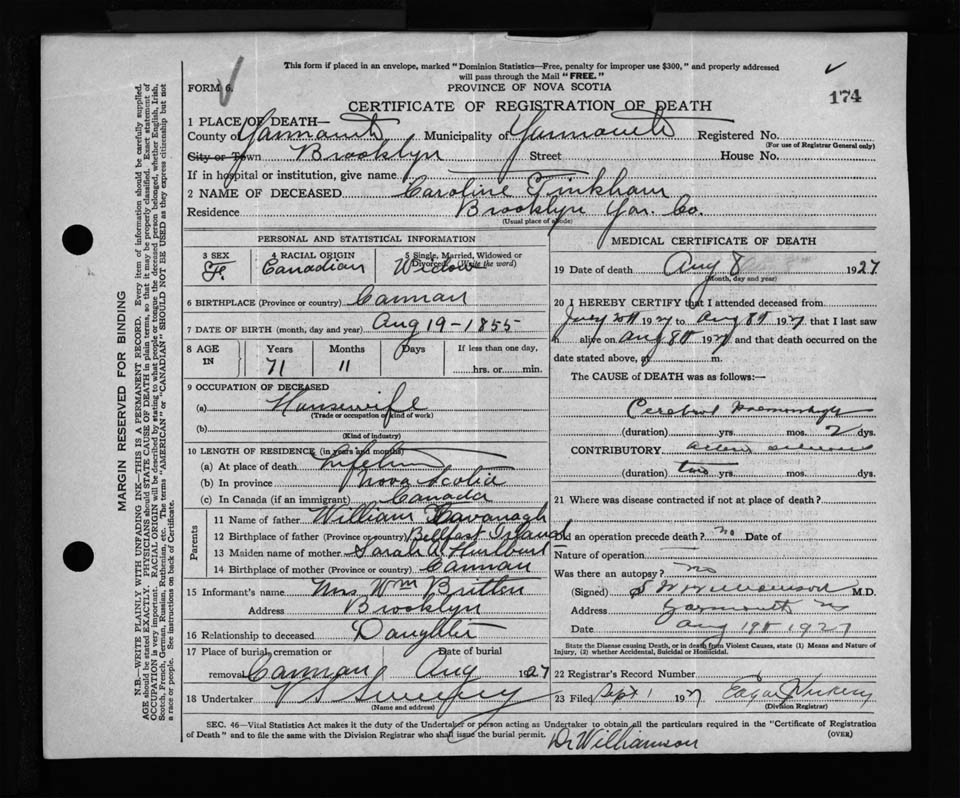 This form if placed in an envelope, marked "Dominion Statistics—Free, penalty for improper use $300," and properly addressed
will pass through the Mail "FREE."
FORM 6.
PROVINCE OF NOVA SCOTIA
174
CERTIFICATE OF REGISTRATION OF DEATH
1 PLACE OF DEATH—
County of Yarmouth Municipality of Yarmouth Registered No.
(For use of Registrar General only)
City or Town Brooklyn Street House No.
If in hospital or institution, give name
2 NAME OF DECEASED Caroline Tinkham
Residence Brooklyn Yar. Co.
(Usual place of abode)
PERSONAL AND STATISTICAL INFORMATION
3 SEX 4 RACIAL ORIGIN 5 Single, Married, Widowed or
Divorced (Write the word)
F. Canadian Widow
6 BIRTHPLACE (Province or country) Carman
7 DATE OF BIRTH (month, day and year) Aug 19-1855
8 AGE Years Months Days If less than one day,
IN 71 11 hrs. or min.
9 OCCUPATION OF DECEASED
(a) Housewife
(Trade or occupation or kind of work)
(b)
(Kind of industry)
10 LENGTH OF RESIDENCE (in years and months)
(a) At place of death Lifetime
(b) In province Nova Scotia
(c) In Canada (if an immigrant) Canada
Parents
11 Name of father William Cavanagh
12 Birthplace of father (Province or country) Bellfast Ireland
13 Maiden name of mother Sarah A Hurlburt
14 Birthplace of mother (Province or country) Carman
15 Informant's name Mrs Wm Britten
Address Brooklyn
16 Relationship to deceased Daughter
17 Place of burial, cremation or Date of burial
removal Carman Aug 1927
18 Undertaker V S Sweeny
(Name and address)
MEDICAL CERTIFICATE OF DEATH
19 Date of death Aug 8 1927
(Month, day and year)
20 I HEREBY CERTIFY that I attended deceased from
1927 to Aug 8th 1927 that I last saw
h alive on Aug 8th 1927 and that death occurred on the
date stated above, at m.
The CAUSE of DEATH was as follows:—
Cerebral haemorrhage
(duration) yrs. mos. 2 dys.
CONTRIBUTORY
(duration) two yrs. mos. dys.
21 Where was disease contracted if not at place of death?
Did an operation precede death? no Date of
Nature of operation
Was there an autopsy? no
(Signed) S W Williamson M.D.
Address Yarmouth NS
Date Aug 19th 1927
State the Disease causing Death, or in death from Violent Causes, state (1) Means and Nature of
Injury, (2) whether Accidental, Suicidal or Homicidal.
22 Registrar's Record Number
23 Filed Sept 1 1927 Edgar
(Division Registrar)
SEC. 46—Vital Statistics Act makes it the duty of the Undertaker or person acting as Undertaker to obtain all the particulars required in the "Certificate of Registration
of Death" and to file the same with the Division Registrar who shall issue the burial permit.
(OVER)
Dr Williamson
MARGIN RESERVED FOR BINDING
N.B.—WRITE PLAINLY WITH UNFADING INK—THIS IS A PERMANENT RECORD. Every item of information should be carefully supplied.
AGE should be stated EXACTLY. PHYSICIANS should STATE CAUSE OF DEATH in plain terms, so that it may be properly classified. Exact statement of
OCCUPATION is very important. RACIAL ORIGIN will be described by stating to what people or tongue the deceased person belonged, whether English, Irish,
Scotch, French, German, Russian, Ruthenian, etc. The terms "AMERICAN" or "CANADIAN" SHOULD NOT BE USED as they express citizenship but not
a race or people. See instructions on back of Certificate.